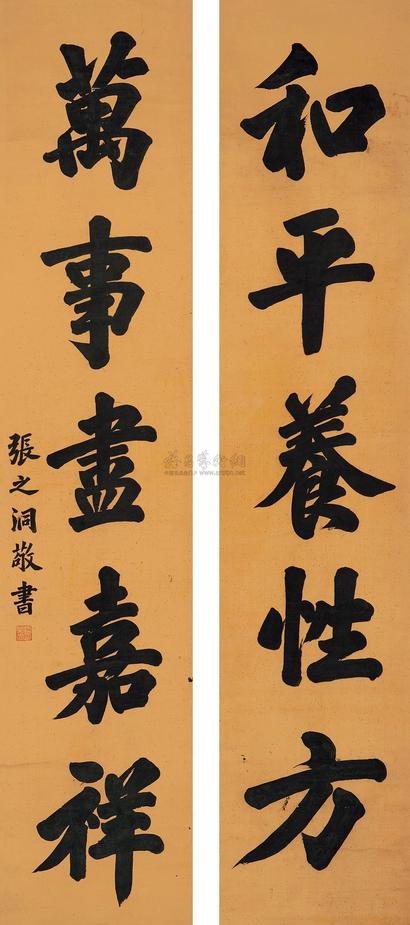 和平養性方
萬事盡嘉祥
張之洞敬書